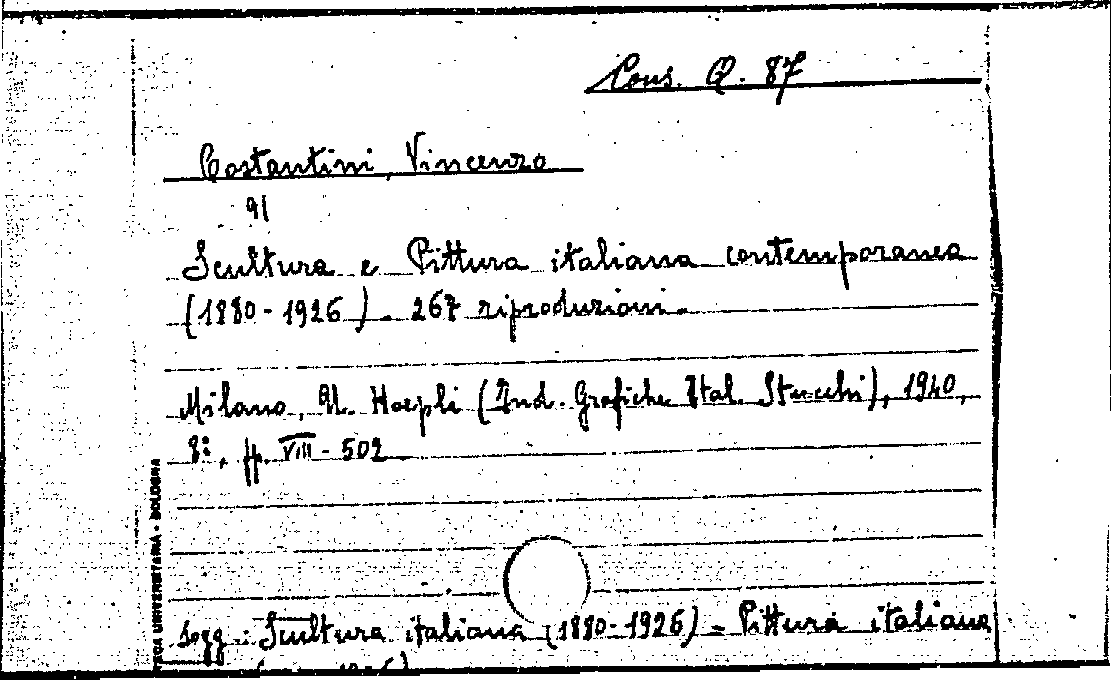 Cons. Q. 87
Costantini, Vincenzo
91
Scultura e Pittura italiana contemporanea
(1880-1926). 267 riproduzioni.
Milano, U. Hoepli (Ind. Grafiche Ital. Stucchi), 1940,
8°, pp. VIII-502
Sogg.: Scultura italiana (1880-1926) - Pittura italiana
UNIVERSITARIA - BOLOGNA